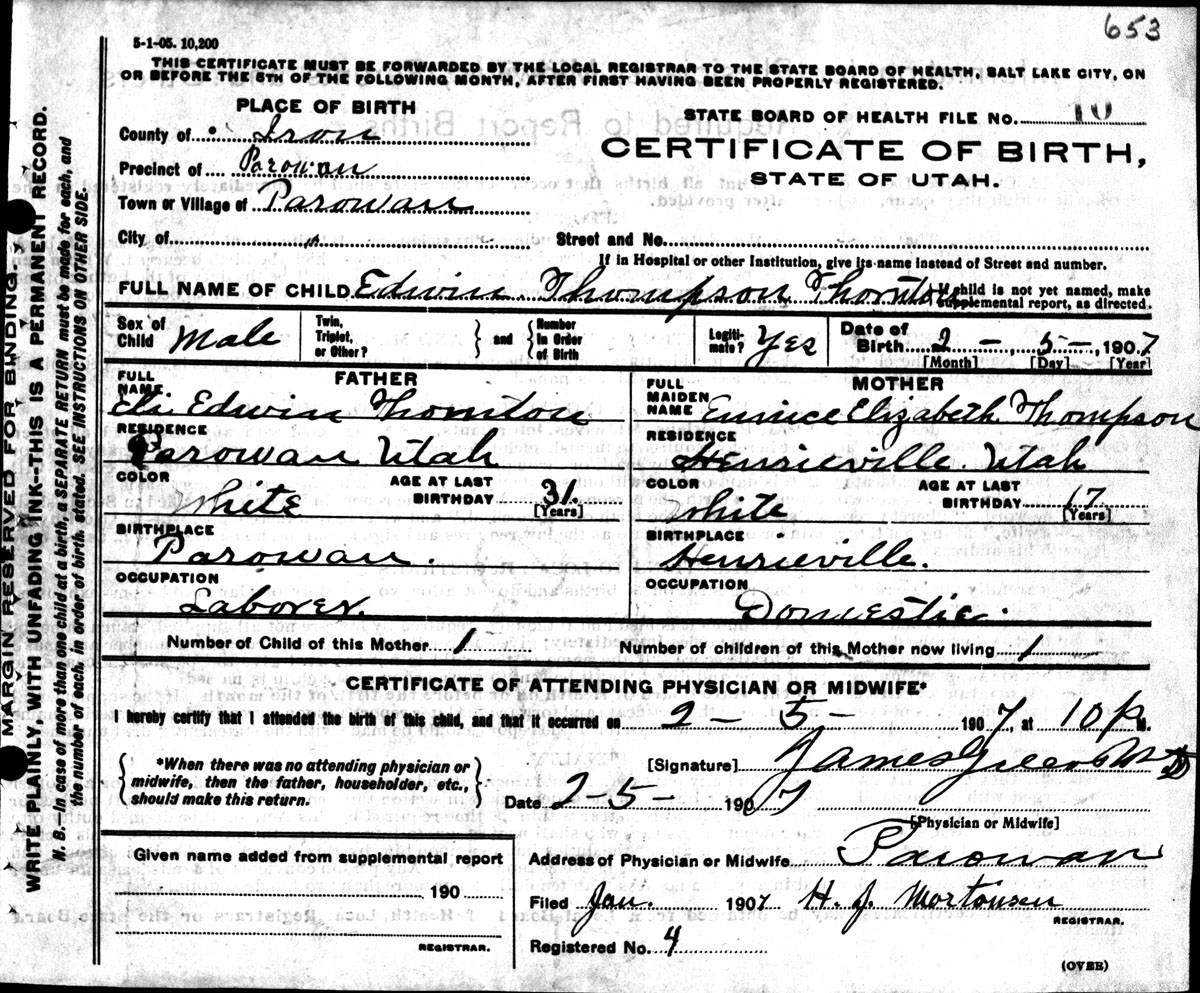 653
5-1-05. 10,200
THIS CERTIFICATE MUST BE FORWARDED BY THE LOCAL REGISTRAR TO THE STATE BOARD OF HEALTH, SALT LAKE CITY, ON
OR BEFORE THE 5TH OF THE FOLLOWING MONTH, AFTER FIRST HAVING BEEN PROPERLY REGISTERED.
PLACE OF BIRTH
County of Iron
Precinct of Parowan
Town or Village of Parowan
STATE BOARD OF HEALTH FILE NO. 10
CERTIFICATE OF BIRTH,
STATE OF UTAH.
City of Street and No.
If in Hospital or other Institution, give its name instead of Street and number.
FULL NAME OF CHILD Edwin Thompson Thornton
If child is not yet named, make
supplemental report, as directed.
Sex of Child Male
Twin, Triplet, or Other? } and { Number In Order of Birth
Legiti-mate? Yes
Date of Birth 2 - 5 -, 1907
[Month] [Day] [Year]
FATHER
FULL NAME Eli Edwin Thornton
RESIDENCE Parowan Utah
COLOR White
AGE AT LAST BIRTHDAY 31 [Years]
BIRTHPLACE Parowan.
OCCUPATION Laborer.
MOTHER
FULL MAIDEN NAME Eunice Elizabeth Thompson
RESIDENCE Henrieville. Utah
COLOR White
AGE AT LAST BIRTHDAY 17 [Years]
BIRTHPLACE Henrieville.
OCCUPATION Domestic.
Number of Child of this Mother 1
Number of children of this Mother now living 1
CERTIFICATE OF ATTENDING PHYSICIAN OR MIDWIFE*
I hereby certify that I attended the birth of this child, and that it occurred on 2 - 5 - 1907, at 10 P M.
*When there was no attending physician or
midwife, then the father, householder, etc.,
should make this return.
[Signature] James Green M D
Date 2-5- 1907
[Physician or Midwife]
Given name added from supplemental report
190
REGISTRAR.
Address of Physician or Midwife Parowan
Filed Jan. 1907 H. J. Mortensen
REGISTRAR.
Registered No. 4
(OVER)
MARGIN RESERVED FOR BINDING.
WRITE PLAINLY, WITH UNFADING INK--THIS IS A PERMANENT RECORD.
N. B. In case of more than one child at a birth, a SEPARATE RETURN must be made for each, and
the number of each, in order of birth, stated. SEE INSTRUCTIONS ON OTHER SIDE.